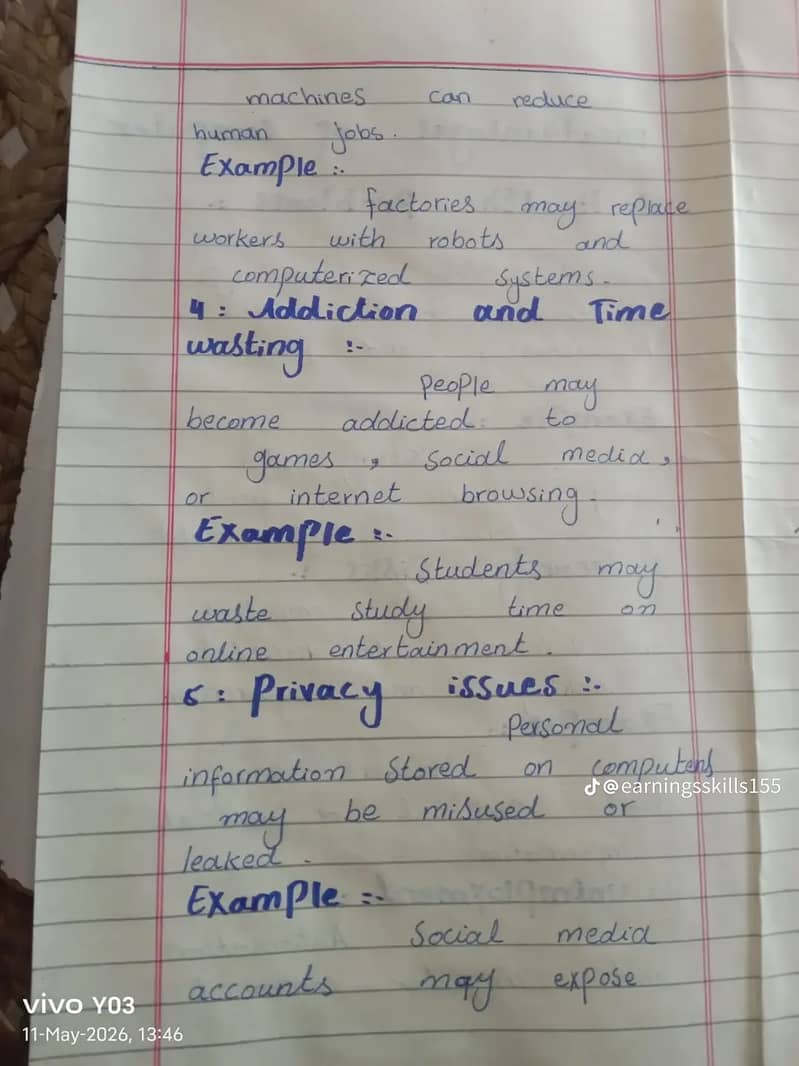 machines can reduce
human jobs.
Example :-
factories may replace
workers with robots and
computerized systems.
4 : Addiction and Time
wasting :-
People may
become addicted to
games , social media ,
or internet browsing.
Example :-
Students may
waste study time on
online entertainment .
5 : Privacy issues :-
Personal
information stored on computers
@earningsskills155
may be misused or
leaked .
Example :-
Social media
accounts may expose
vivo Y03
11-May-2026, 13:46